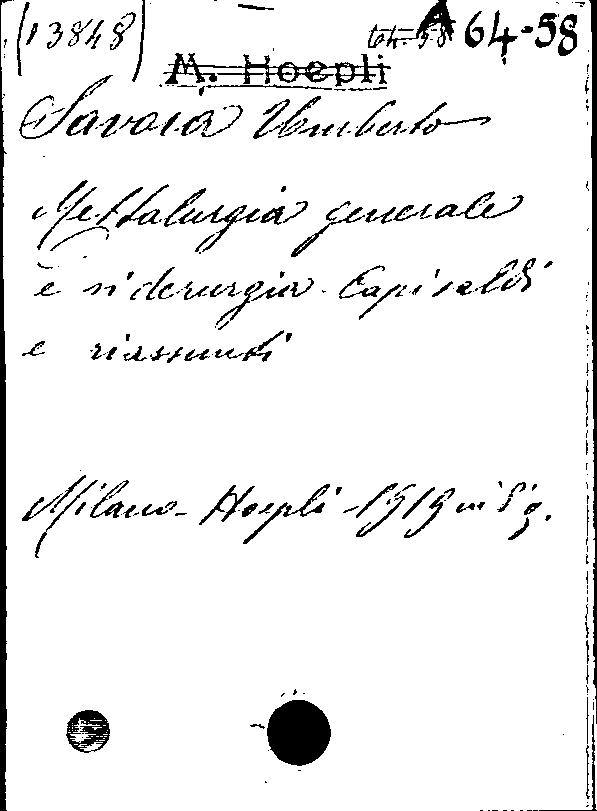 (13848) 64-58 A 64-58
M. Hoepli
Savoia Umberto
Metallurgia generale
e siderurgia. Capisaldi
e riassunti
Milano - Hoepli - 1919 in 8° g.